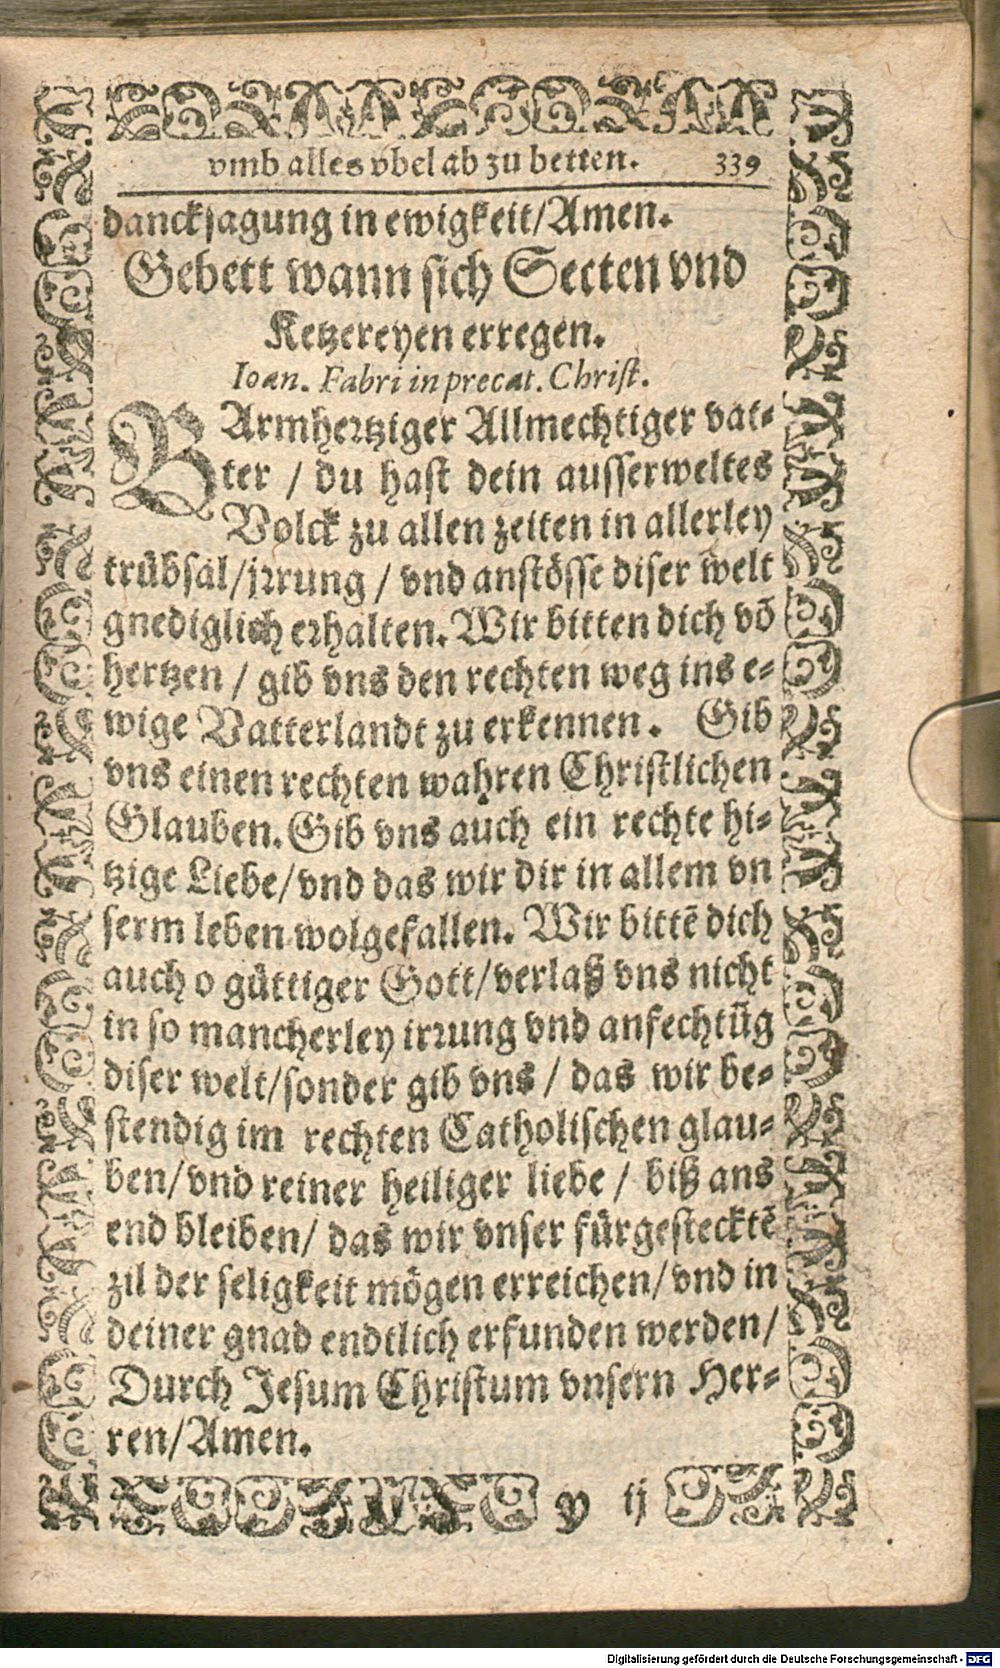 vmb alles vbel ab zu betten. 339
dancksagung in ewigkeit/Amen.
Gebett wann sich Secten vnd
Ketzereyen erregen.
Ioan. Fabri in precat. Christ.
BArmhertziger Allmechtiger vat-
ter / du hast dein ausserweltes
Volck zu allen zeiten in allerley
trübsal/jrrung / vnd anstösse diser welt
gnediglich erhalten. Wir bitten dich võ
hertzen / gib vns den rechten weg ins e-
wige Vatterlandt zu erkennen. Gib
vns einen rechten wahren Christlichen
Glauben. Gib vns auch ein rechte hi-
tzige Liebe/vnd das wir dir in allem vn
serm leben wolgefallen. Wir bittẽ dich
auch o güttiger Gott/verlaß vns nicht
in so mancherley irrung vnd anfechtũg
diser welt/sonder gib vns / das wir be-
stendig im rechten Catholischen glau-
ben/vnd reiner heiliger liebe / biß ans
end bleiben/ das wir vnser fürgestecktẽ
zil der seligkeit mögen erreichen/vnd in
deiner gnad endtlich erfunden werden/
Durch Jesum Christum vnsern Her-
ren/Amen.
y ij
Digitalisierung gefördert durch die Deutsche Forschungsgemeinschaft - DFG